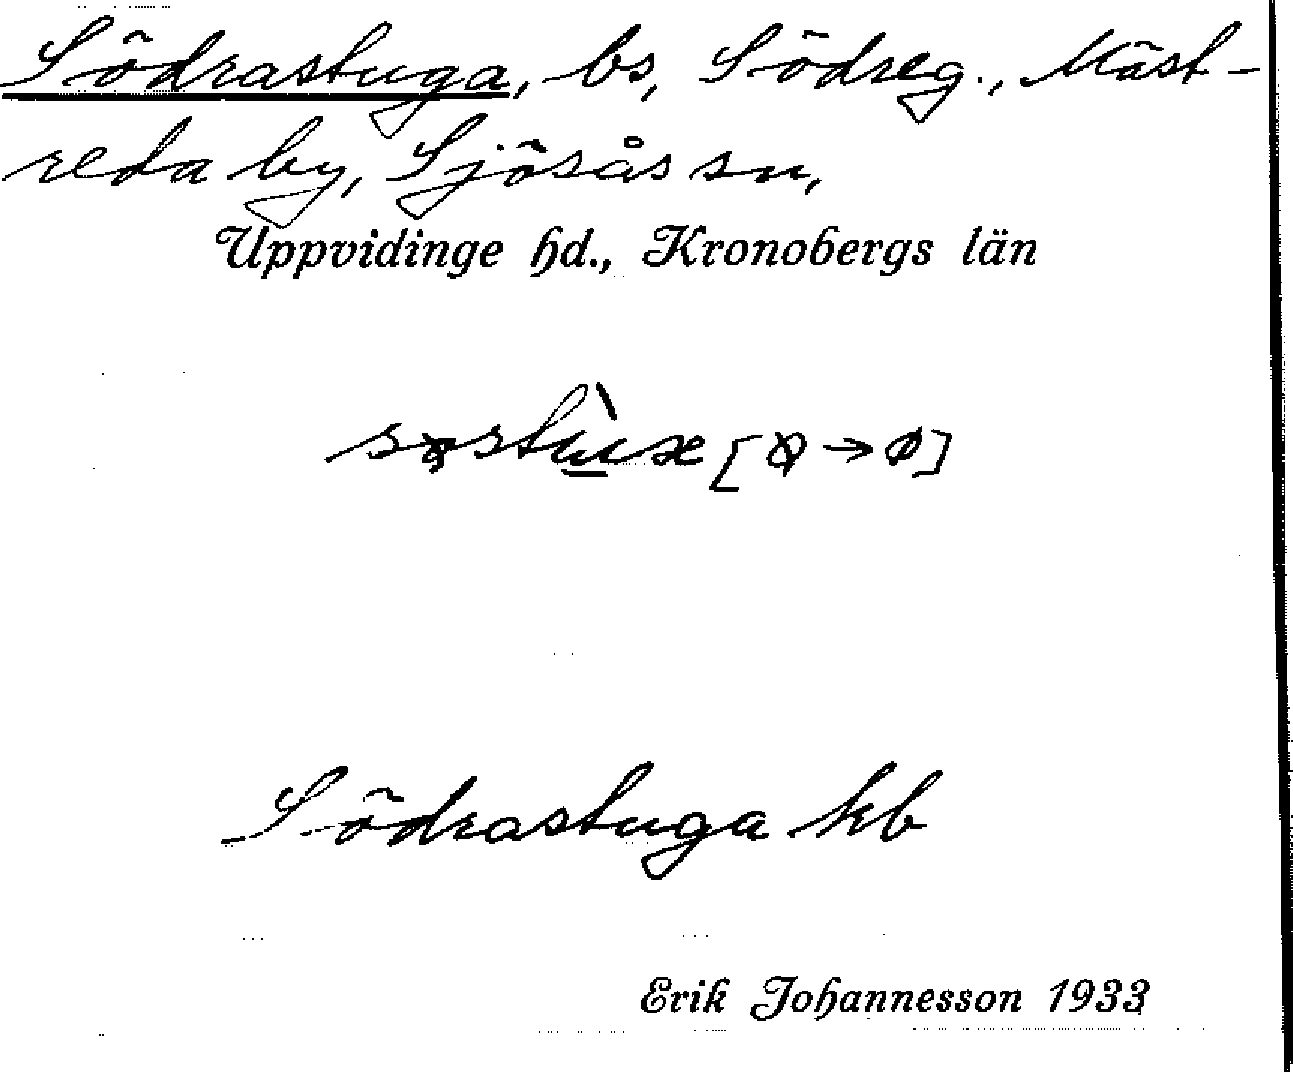 Södrastuga, bs, Södreg., Mäst-
reda by, Sjösås sn,
Uppvidinge hd., Kronobergs län
Södrastuga kb
Erik Johannesson 1933